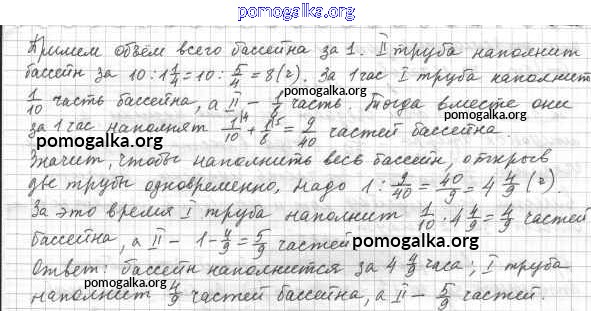 pomogalka.org
Примем объём всего бассейна за 1. II труба наполнит
бассейн за 10 : 1 1/4 = 10 : 5/4 = 8 (г). За 1 час I труба наполнит
1/10 часть бассейна, а II – 1/8 часть. Тогда вместе они
pomogalka.org
за 1 час наполнят 1/10 + 1/8 = 9/40 частей бассейна.
pomogalka.org
Значит, чтобы наполнить весь бассейн, открыв
две трубы одновременно, надо 1 : 9/40 = 40/9 = 4 4/9 (г).
За это время I труба наполнит 1/10 · 4 4/9 = 4/9 частей
бассейна, а II – 1 - 4/9 = 5/9 частей
pomogalka.org
Ответ: бассейн наполнится за 4 4/9 часа; I труба
pomogalka.org
наполнит 4/9 частей бассейна, а II – 5/9 частей.